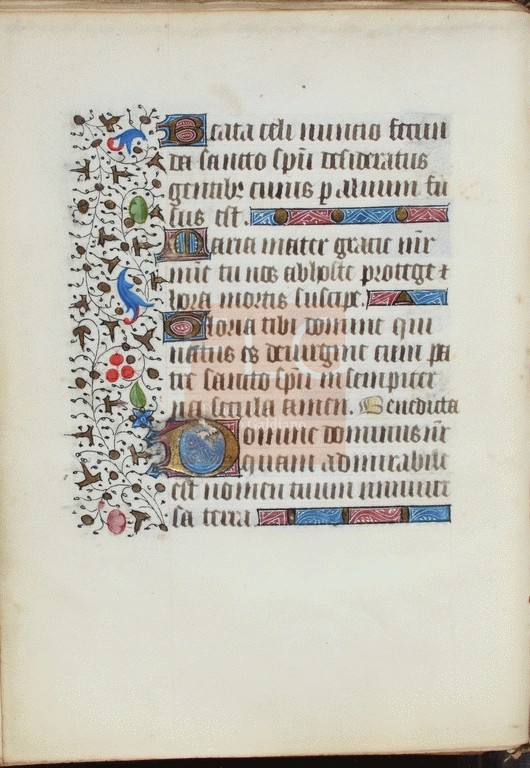 Beata celi nuncio fecun
da sancto spū desideratus
gentibꝫ cuius p aluum fu
sus est.
Maria mater gracie mr̄
mīe tu nos ab hoste protege ⁊
hora mortis suscipe.
Gloria tibi domine qui
natus es de uirgine cum pa
tre sancto spū in sempiter
na secula amen. Benedicta
Domine dominus nr̄
quam admirabile
est nomen tuum in uniuer
sa terra.